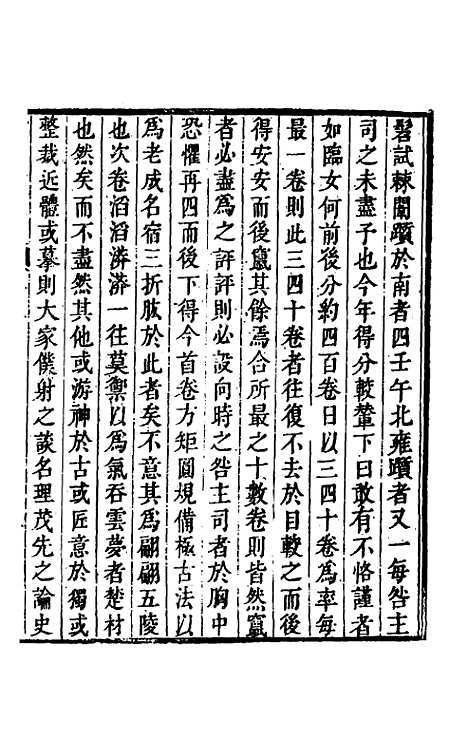 髫試棘闈躓於南者四壬午北雍躓者又一每咎主
司之未盡子也今年得分較輦下曰敢有不恪謹者
如臨女何前後分約四百卷日以三四十卷爲率每
最一卷則此三四十卷者往復不去於目較之而後
得安安而後竄其餘焉合所最之十數卷則皆然竄
者必盡爲之評評則必設向時之咎主司者於胸中
恐懼再四而後下得今首卷方矩圓規備極古法以
爲老成名宿三折肱於此者矣不意其爲翩翩五陵
也次卷滔滔漭漭一往莫禦以爲氣吞雲夢者楚材
也然矣而不盡然其他或游神於古或匠意於獨或
整裁近體或摹則大家僕射之談名理茂先之論史